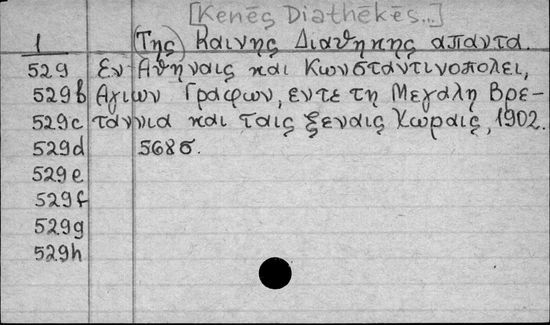 [Kenēs Diathēkēs...]
1 (Της) Καινης Διαθηκης απαντα.
529 Εν Αθηναις και Κωνσταντινοπολει,
529b Αγιων Γραφων, εντε τη Μεγαλη Βρε-
529c ταννια και ταις ξεναις Χωραις, 1902.
529d 568σ.
529e
529f
529g
529h